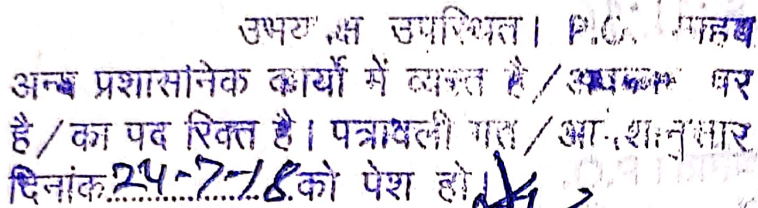 उभय पक्ष उपस्थित। P.O. साहब
अन्य प्रशासनिक कार्यो में व्यस्त है/अवकाश पर
है/का पद रिक्त है। पत्रावली गत/आदेशानुसार
दिनांक 24-7-18 को पेश हो।